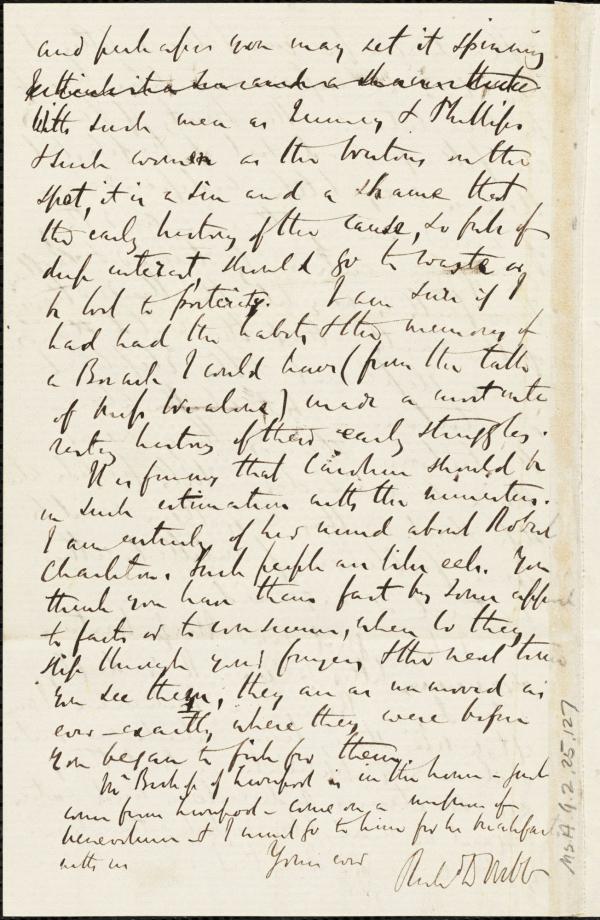 and perhaps you may set it spinning
With such men as Quincy & Phillips
& such women as the Westons on the
spot, it is a sin and a shame that
the early history of the cause, so full of
deep interest, should go to waste or
be lost to posterity. I am sure if I
had had the habits & the memory of
a Boswell I could have (from the talk
of Miss W alone) made a most inte
resting history of their early struggles.
It is funny that Caroline should be
in such estimation with the ministers.
I am entirely of her mind about Robert
Charleton. Such people are like eels. You
think you have them fast by some appeal
to facts or to conscience, when lo they
slip through your fingers, & the next time
you see them, they are as unmoved as
ever - exactly where they were before
you began to fish for them.
Mr Bishop of Liverpool is in the house - just
come from Liverpool - come on a mission of
benevolence - & I must go to him for he breakfasts
with us Yours ever
Richd D Webb
Ms.A.9.2.25.127